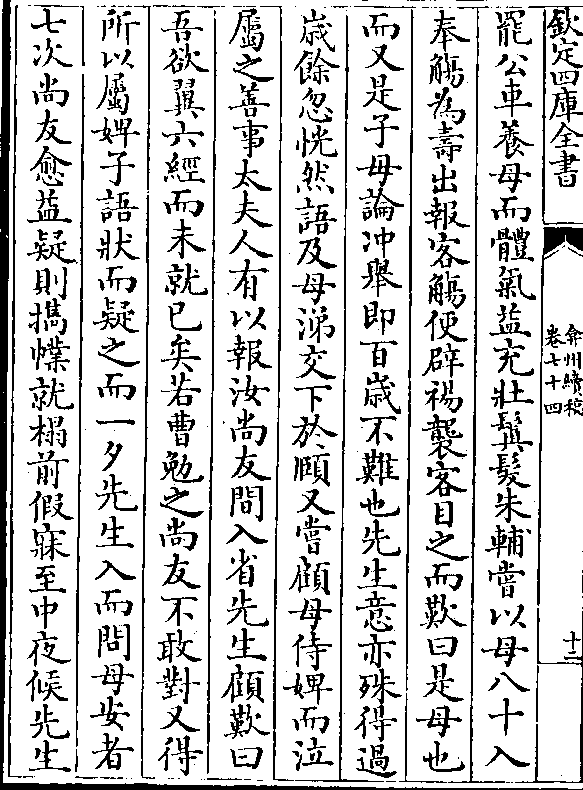 欽定四庫全書
弇州續稿
卷七十四
十二
罷公車養母而體氣益充壯鬒髮朱輔嘗以母八十入
奉觴為壽出報客觴便辟裼襲客目之而歎曰是母也
而又是子母論冲舉即百歳不難也先生意亦殊得過
歳餘忽恍然語及母涕交下於頤又嘗顧母侍婢而泣
屬之善事太夫人有以報汝尚友間入省先生顧歎曰
吾欲翼六經而未就已矣若曹勉之尚友不敢對又得
所以屬婢子語狀而疑之而一夕先生入而問母安者
七次尚友愈益疑則㩦幞就榻前假寐至中夜候先生